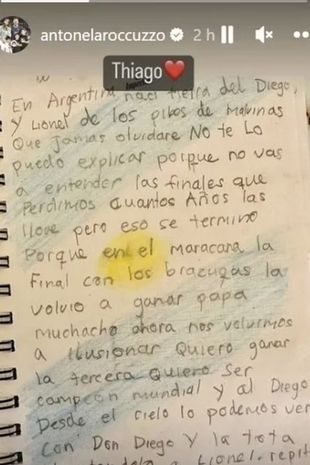 antonelaroccuzzo 2 h
Thiago
En Argentina naci tierra del Diego,
Y Lionel de los pibes de malvinas
Que Jamas olvidare No te Lo
puedo explicar porque no vas
a entender las finales que
Perdimos cuantos Años las
llore pero eso se termino
Porque en el maracana la
Final con los brazugas la
volvio a ganar papa
muchacho ahora nos volvimos
a ilusionar Quiero ganar
la tercera Quiero ser
campeon mundial y al Diego
Desde el cielo lo podemos ver
Con Don Diego y la tota
Lionel.